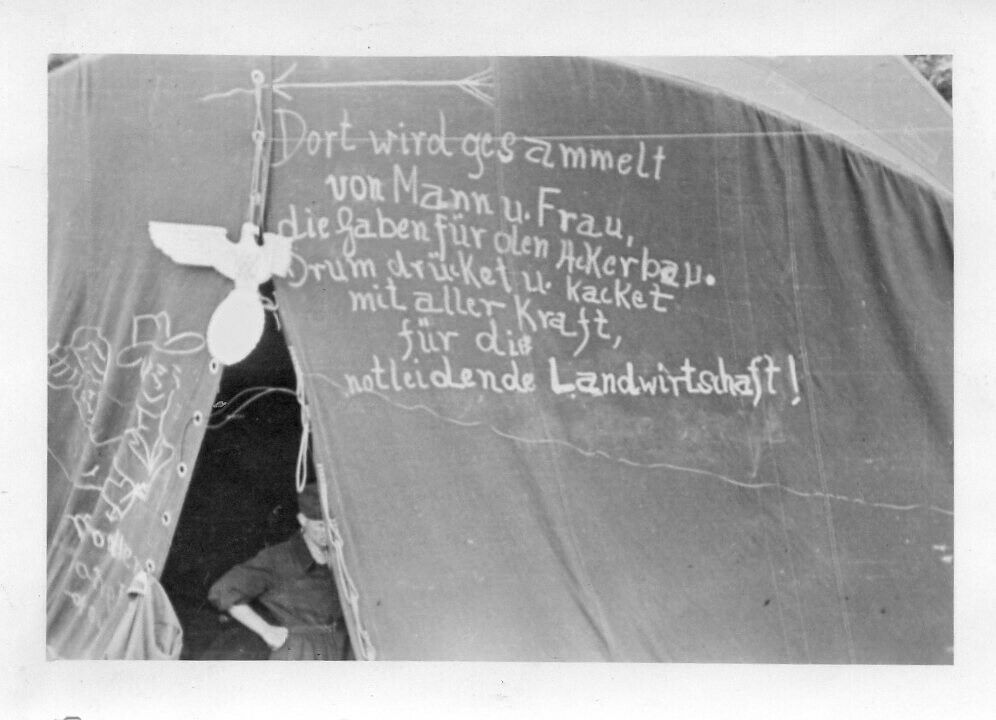 Dort wird gesammelt
von Mann u. Frau,
die Gaben für den Ackerbau.
Drum drücket u. kacket
mit aller Kraft,
für die
notleidende Landwirtschaft!